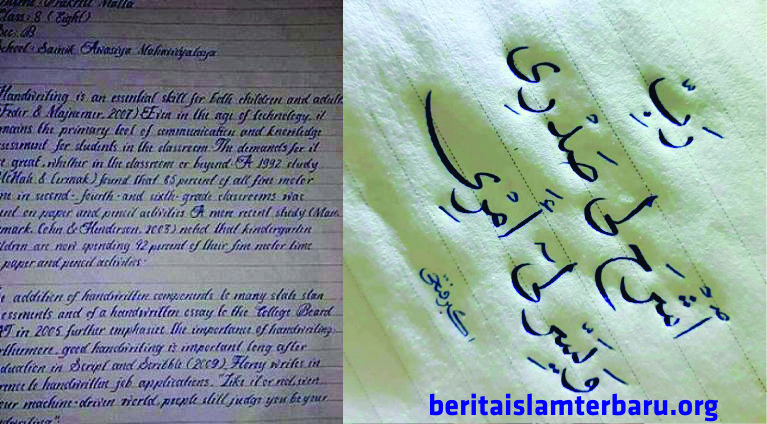 Prakriti Malla
Class: 8 (Eight)
Sec: B
School: Sainik Awasiya Mahavidyalaya
Handwriting is an essential skill for both children and adult
(Feder & Majnemer, 2007) Even in the age of technology, it
mains the primary tool of communication and knowledge
sessment for students in the classroom. The demands for it
re great, whether in the classroom or beyond. A 1992 study
McHale & Cermak) found that 85 percent of all fine motor
me in second- fourth- and sixth- grade classrooms was
ent on paper and pencil activities. A more recent study (Marr
rmark, Cohn & Henderson, 2003) noted that kindergarten
ldren are now spending 42 percent of their fine motor time
paper and pencil activities.
e addition of handwritten components to many state stan
essments and of a handwritten essay to the College Board
AT in 2005 further emphasize the importance of handwriting.
rthermore, good handwriting is important long after
duation in Script and Scribble (2009), Florey writes in
rence to handwritten job applications, "Like it or not, even
our machine-driven world, people still judge you by your
dwriting".
رَبِّ
اشْرَحْ لِى صَدْرِى
وَيَسِّرْ لِىٓ أَمْرِى
beritaislamterbaru.org